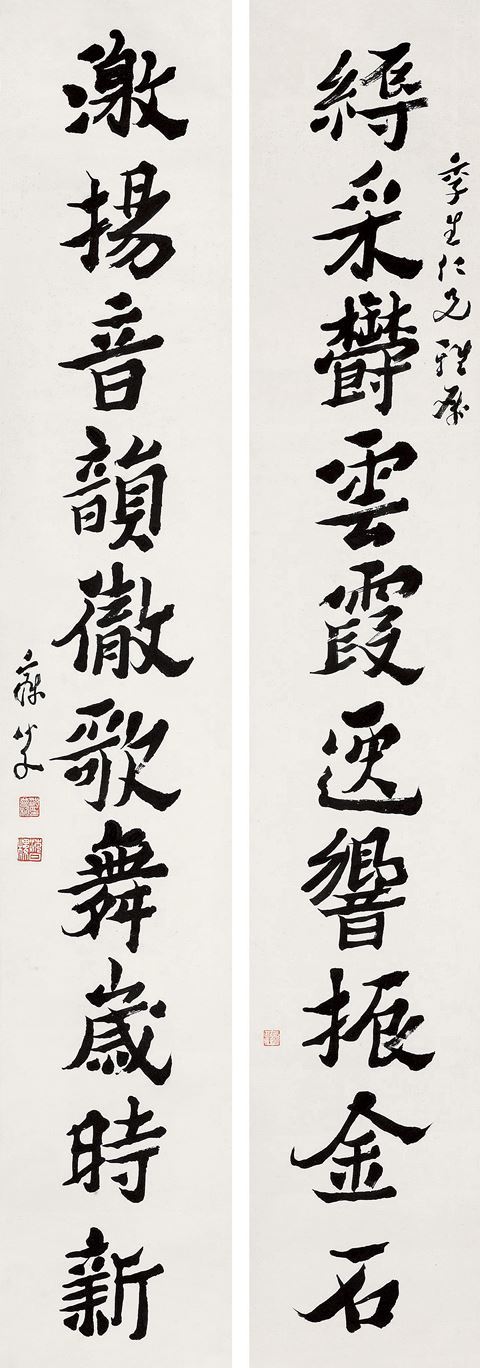 季生仁兄雅屬
縟采鬱雲霞逸響振金石
激揚音韻徹歌舞歲時新
寐叟